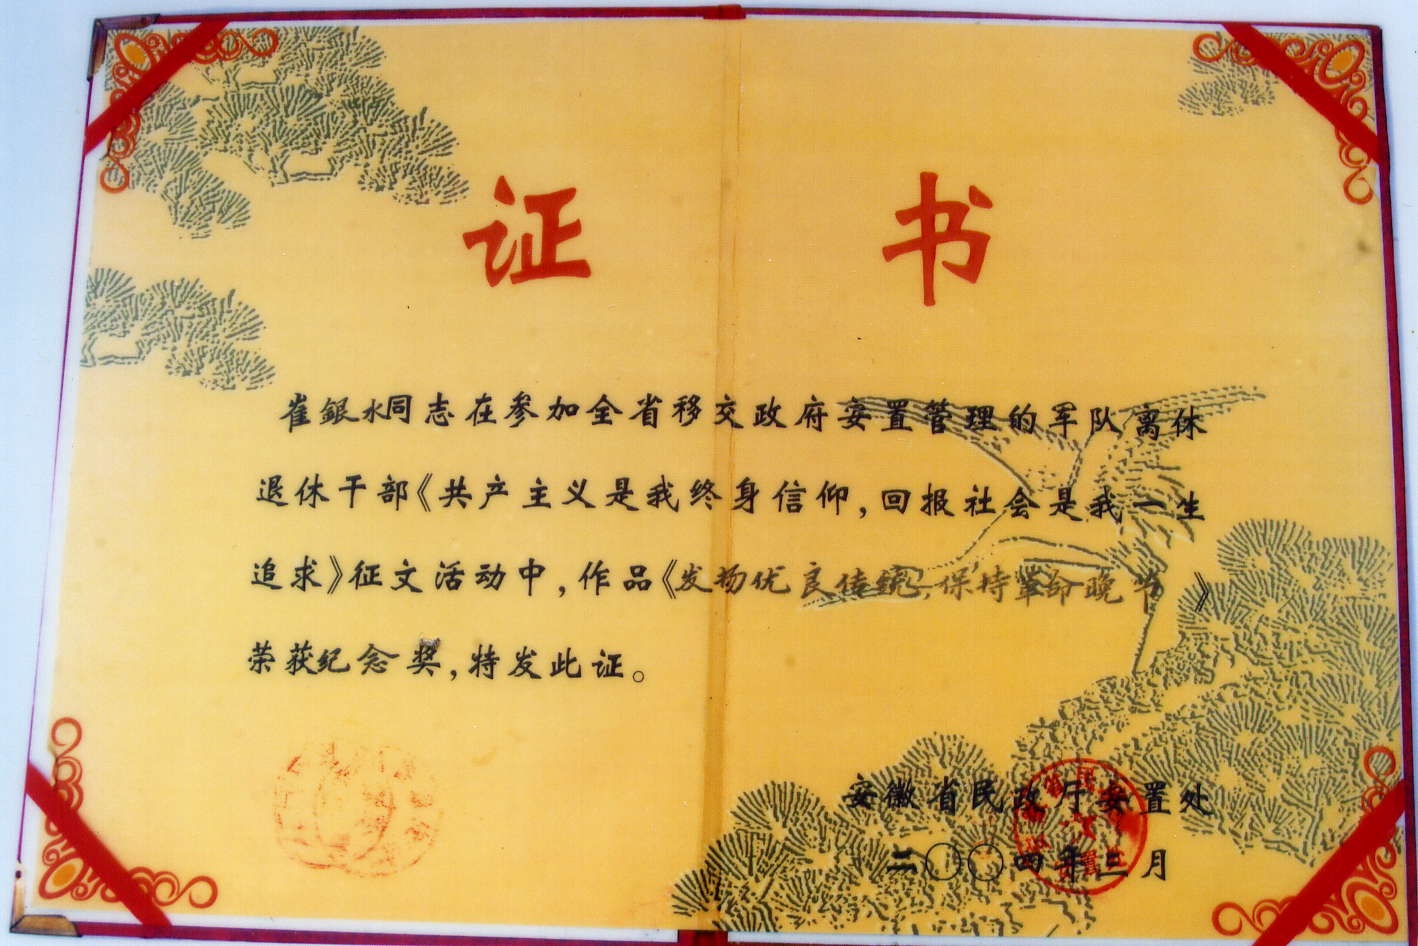 证书
崔銀水同志在参加全省移交政府安置管理的军队离休
退休干部《共产主义是我终身信仰，回报社会是我一生
追求》征文活动中，作品《发扬优良传统，保持革命晚节》
荣获纪念奖，特发此证。
安徽省民政厅安置处
二〇〇四年三月